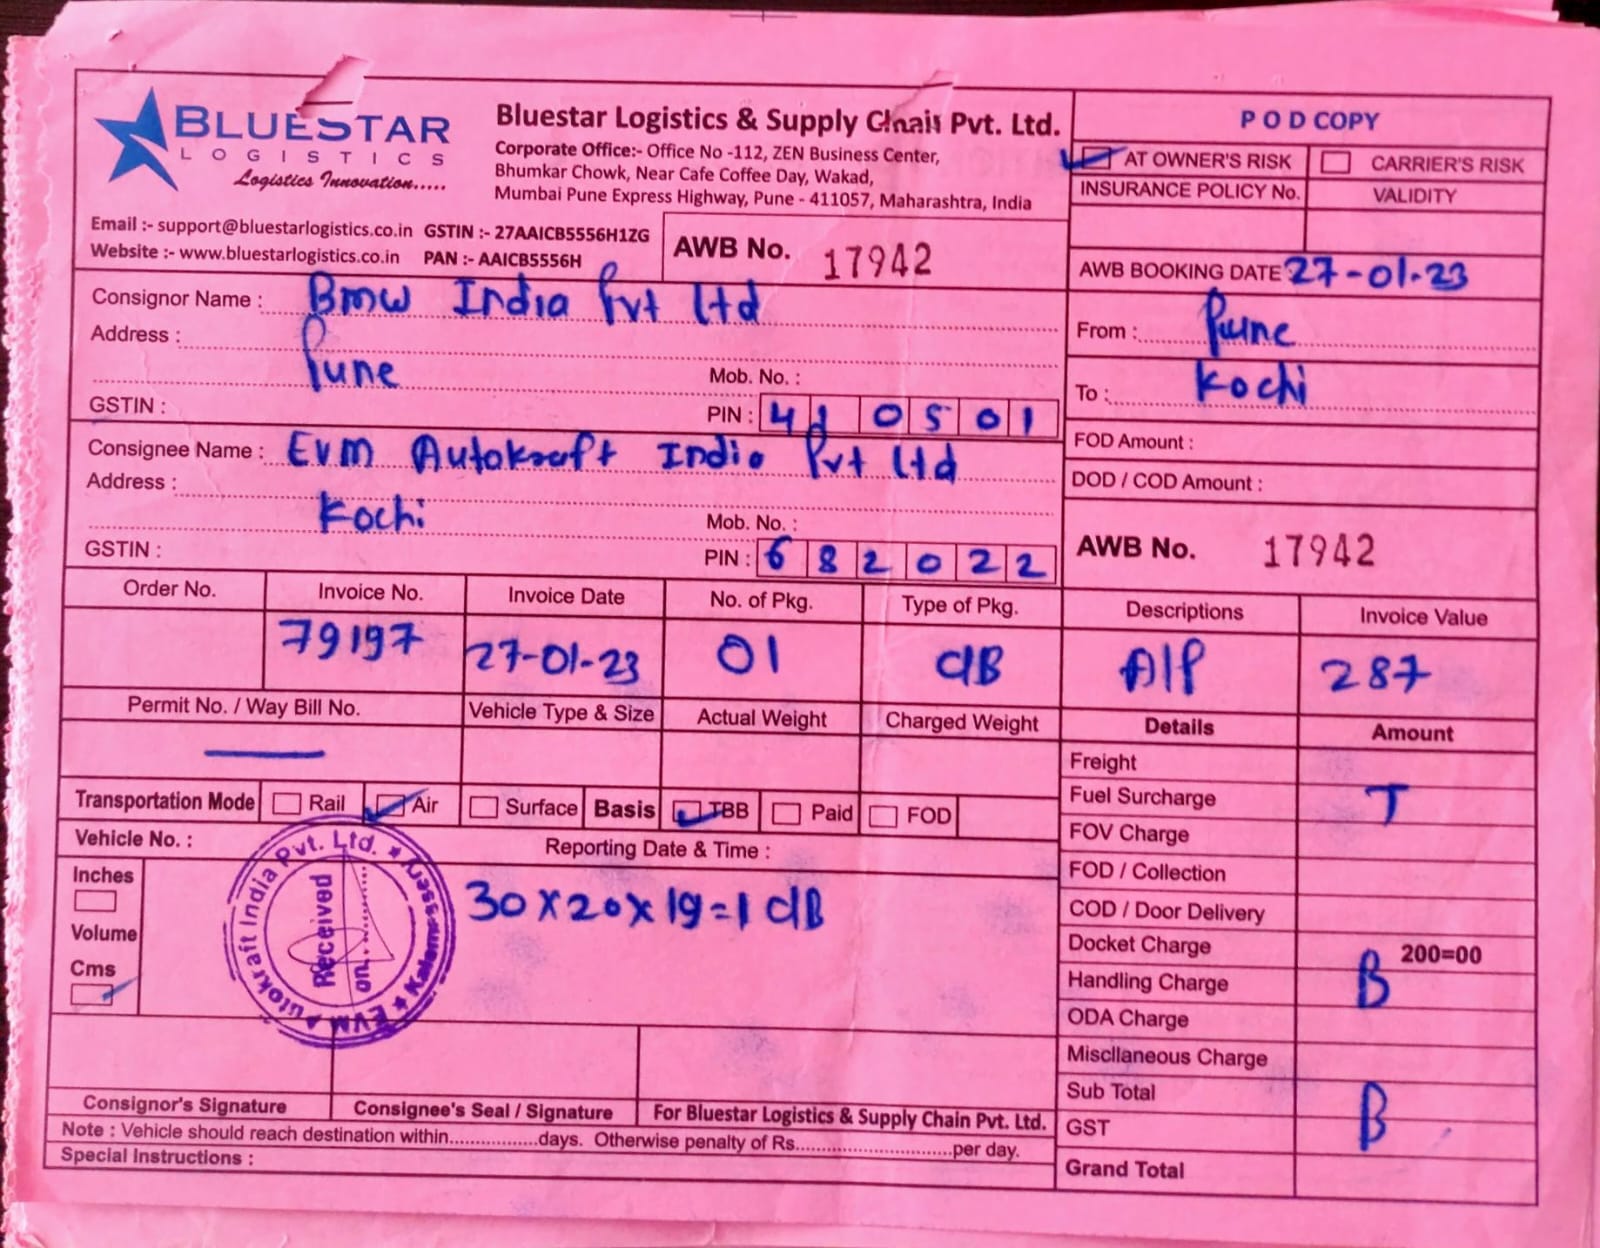 BLUESTAR
LOGISTICS
Logistics Innovation.....
Bluestar Logistics & Supply Chain Pvt. Ltd.
Corporate Office:- Office No -112, ZEN Business Center,
Bhumkar Chowk, Near Cafe Coffee Day, Wakad,
Mumbai Pune Express Highway, Pune - 411057, Maharashtra, India
Email :- support@bluestarlogistics.co.in GSTIN :- 27AAICB5556H1ZG
Website :- www.bluestarlogistics.co.in PAN :- AAICB5556H
AWB No. 17942
P O D COPY
AT OWNER'S RISK CARRIER'S RISK
INSURANCE POLICY No. VALIDITY
AWB BOOKING DATE 27-01-23
Consignor Name : Bmw India Pvt Ltd
Address :
Pune
Mob. No. :
GSTIN : PIN : 410501
From : Pune
To : Kochi
FOD Amount :
DOD / COD Amount :
Consignee Name : Evm Autokraft India Pvt Ltd
Address :
Kochi
Mob. No. :
GSTIN : PIN : 682022
AWB No. 17942
Order No. Invoice No. Invoice Date No. of Pkg. Type of Pkg. Descriptions Invoice Value
79197 27-01-23 01 CIB A/P 287
Permit No. / Way Bill No. Vehicle Type & Size Actual Weight Charged Weight Details Amount
Freight
Fuel Surcharge T
FOV Charge
FOD / Collection
COD / Door Delivery
Docket Charge 200=00
Handling Charge B
ODA Charge
Miscllaneous Charge
Sub Total
GST B
Grand Total
Transportation Mode Rail Air Surface Basis TBB Paid FOD
Vehicle No. : Reporting Date & Time :
Inches
Volume
Cms
30 x 20 x 19 = 1 CIB
EVM Autokraft India Pvt. Ltd. ★ Kalamassery ★
Received
on...........
Consignor's Signature Consignee's Seal / Signature For Bluestar Logistics & Supply Chain Pvt. Ltd.
Note : Vehicle should reach destination within.................days. Otherwise penalty of Rs..............................per day.
Special Instructions :